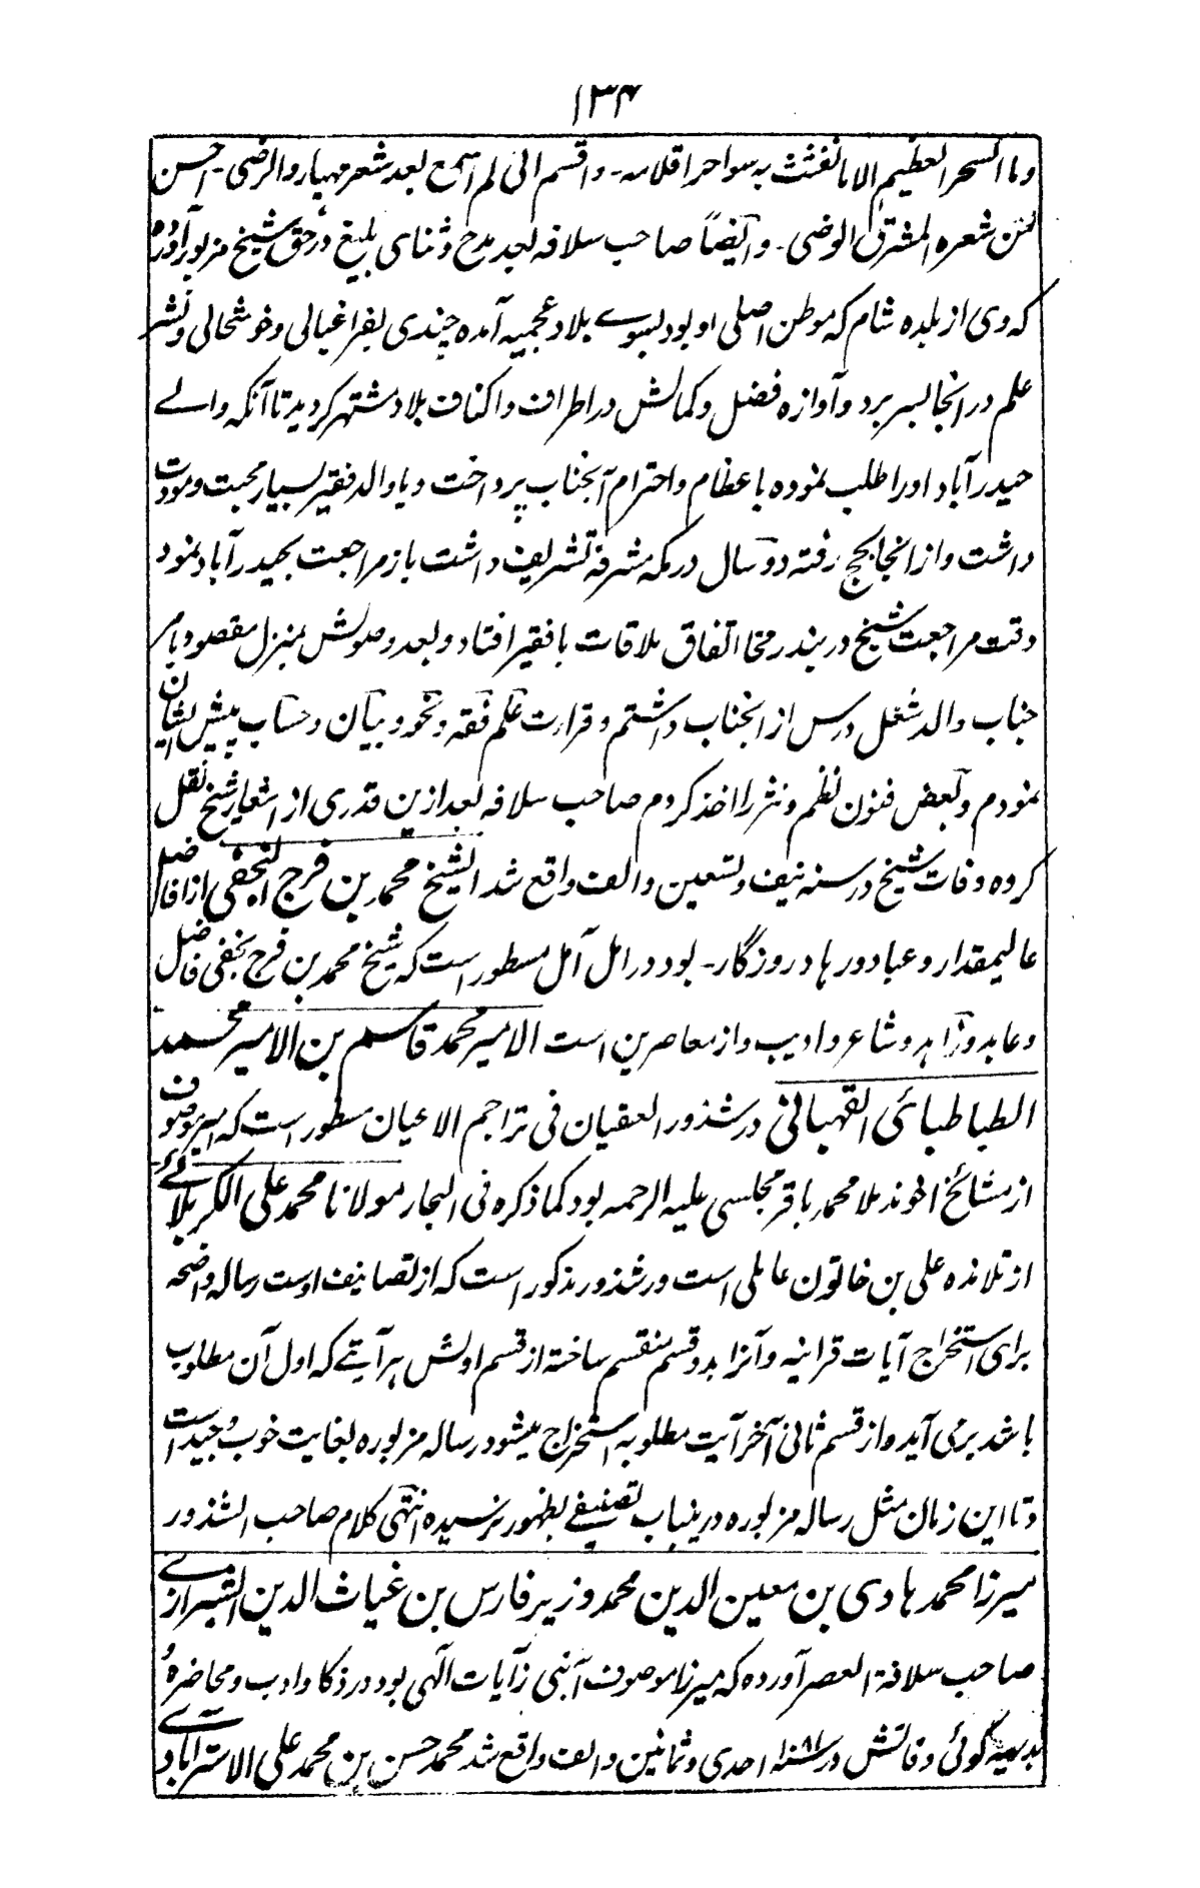 ۱۳۴
وما السحر العظیم الا ما نفثت به سواحر اقلامه - واقسم انی لم اسمع بعد شعر مهیار والرضی - احسن
من شعره المشرق الوضی - وایضاً صاحب سلافه بعد مدح و ثنای بلیغ در حق شیخ مزبور آورده
که وی از بلده شام که موطن اصلی او بود بسوے بلاد عجمیه آمده چندی بفراغبالی و خوشحالی و نشر
علم در انجا بسر برد و آوازه فضل و کمالش در اطراف و اکناف بلاد مشتهر گردید تا آنکه والے
حیدرآباد او را طلب نموده باعظام و احترام آنجناب پرداخت و با والد فقیر بسیار محبت و مودت
داشت و از انجا بحج رفته دو سال در مکه مشرفه تشریف داشت باز مراجعت بحیدرآباد نمود
وقت مراجعت شیخ در بندر مخا اتفاق ملاقات با فقیر افتاد و بعد وصولش بمنزل مقصود بامر
جناب والد شغل درس از انجناب داشتم و قرارت علم فقه و نحو و بیان و حساب پیش ایشان
نمودم و بعض فنون نظم و نثر را اخذ کردم صاحب سلافه بعد ازین قدری از اشعار شیخ نقل
کرده وفات شیخ در سنه نیف و تسعین والف واقع شد الشیخ محمد بن فرج النجفی از افاضل
عالیمقدار و عباد و زهاد روزگار - بود در امل آمل مسطور است که شیخ محمد بن فرج نجفی فاضل
وعابد وزاهد و شاعر و ادیب و از معاصرین است الامیر محمد قاسم بن الامیر محمد
الطباطبائی القهپائی در شذور العقیان فی تراجم الاعیان مسطور است که امیر موصوف
از مشائخ اخوند ملا محمد باقر مجلسی علیه الرحمه بود کما ذکره فی البحار مولانا محمد علی الکربلائے
از تلامذه علی بن خاتون عاملی است و در شذور مذکور است که از تصانیف اوست رساله واضحه
برای استخراج آیات قرانیه و آنرا بدو قسم منقسم ساخته از قسم اولش هر آیتے که اول آن مطلوب
باشد برمی آید و از قسم ثانی آخر آیت مطلوبه استخراج میشود رساله مزبوره بغایت خوب و جید است
و تا این زمان مثل رساله مزبوره درینباب تصنیفے بظهور نرسیده انتهی کلام صاحب الشذور
میرزا محمد هادی بن معین الدین محمد وزیر فارس بن غیاث الدین الشیرازے
صاحب سلافة العصر آورده که میرزا موصوف آیتی ز آیات الهی بود در ذکا و ادب و محاضره و
بدیهه گوئی وفاتش در سنه ۱۰۸۱ احدی و ثمانین والف واقع شد محمد حسن بن محمد علی الاسترآبادے